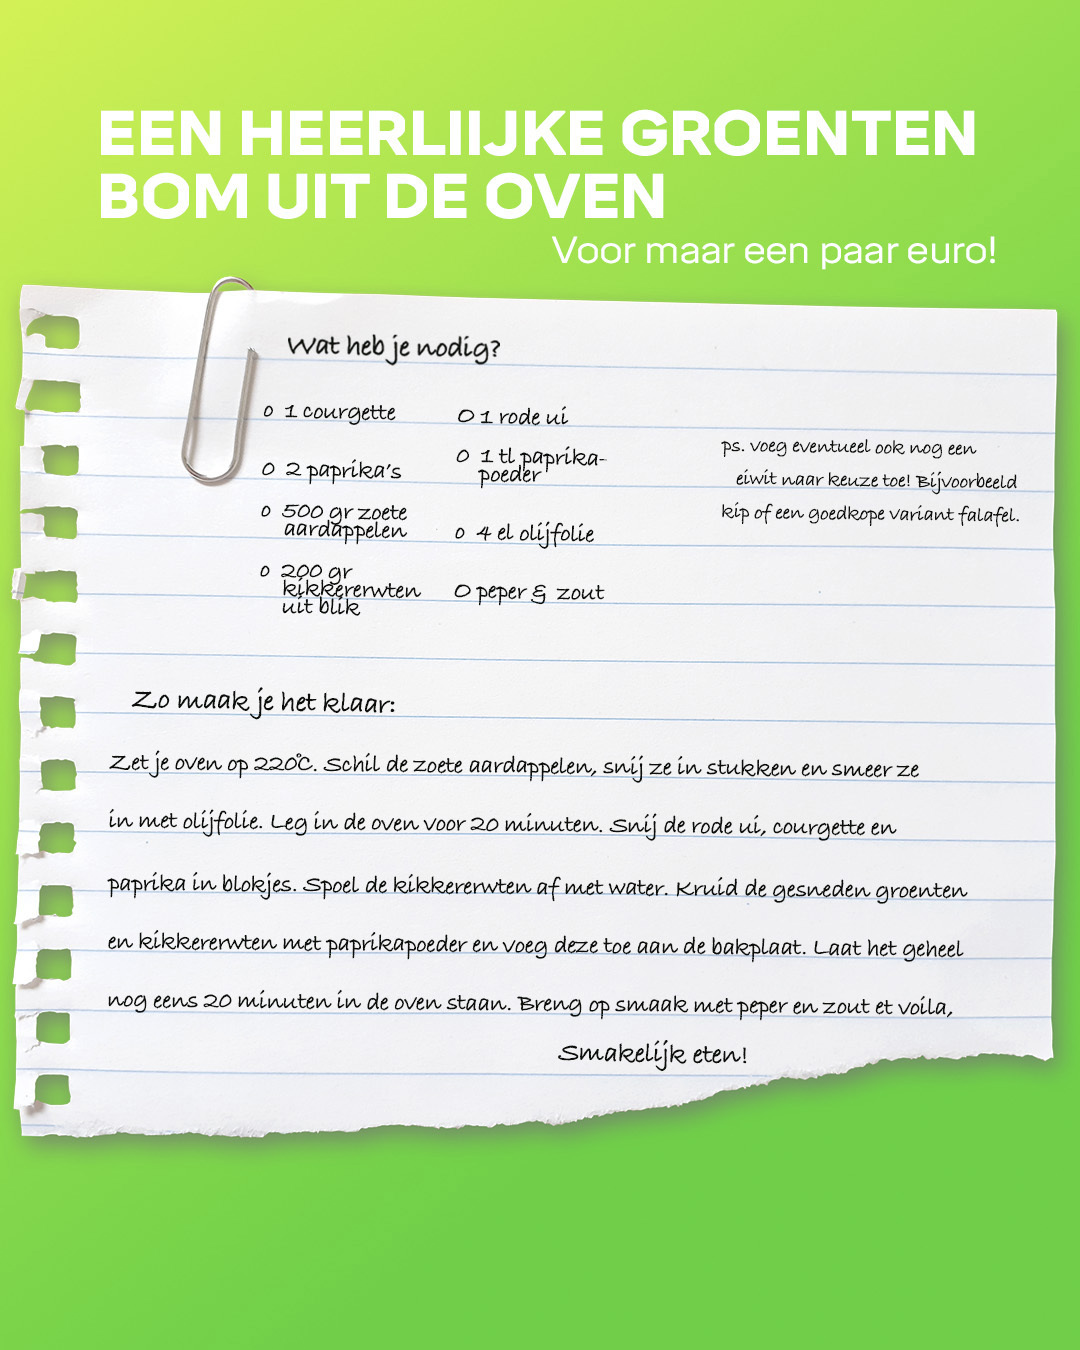 EEN HEERLIIJKE GROENTEN
BOM UIT DE OVEN
Voor maar een paar euro!
Wat heb je nodig?
o 1 courgette
o 2 paprika's
o 500 gr zoete
aardappelen
o 200 gr
kikkererwten
uit blik
O 1 rode ui
o 1 tl paprika-
poeder
o 4 el olijfolie
O peper & zout
ps. voeg eventueel ook nog een
eiwit naar keuze toe! Bijvoorbeeld
kip of een goedkope variant falafel.
Zo maak je het klaar:
Zet je oven op 220°C. Schil de zoete aardappelen, snij ze in stukken en smeer ze
in met olijfolie. Leg in de oven voor 20 minuten. Snij de rode ui, courgette en
paprika in blokjes. Spoel de kikkererwten af met water. Kruid de gesneden groenten
en kikkererwten met paprikapoeder en voeg deze toe aan de bakplaat. Laat het geheel
nog eens 20 minuten in de oven staan. Breng op smaak met peper en zout et voila,
Smakelijk eten!